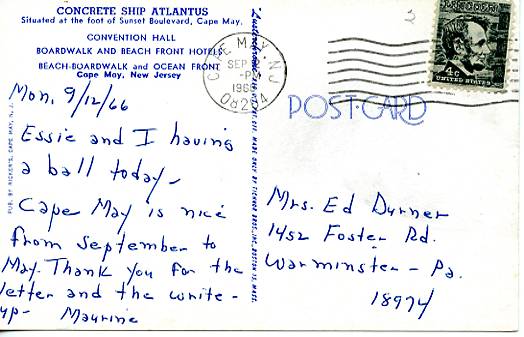 CONCRETE SHIP ATLANTUS
Situated at the foot of Sunset Boulevard, Cape May.
CONVENTION HALL
BOARDWALK AND BEACH FRONT HOTELS
BEACH BOARDWALK AND OCEAN FRONT
Cape May, New Jersey
Mon. 9/12/66
Essie and I having
a ball today-
Cape May is nice
from September to
May. Thank you for the
letter and the write-
up- Maurine
CAPE MAY, N.J.
SEP
1966
08204
LINCOLN
4¢
UNITED STATES
POST CARD
Mrs. Ed Durner
1452 Foster Rd.
Warminster - Pa.
18974